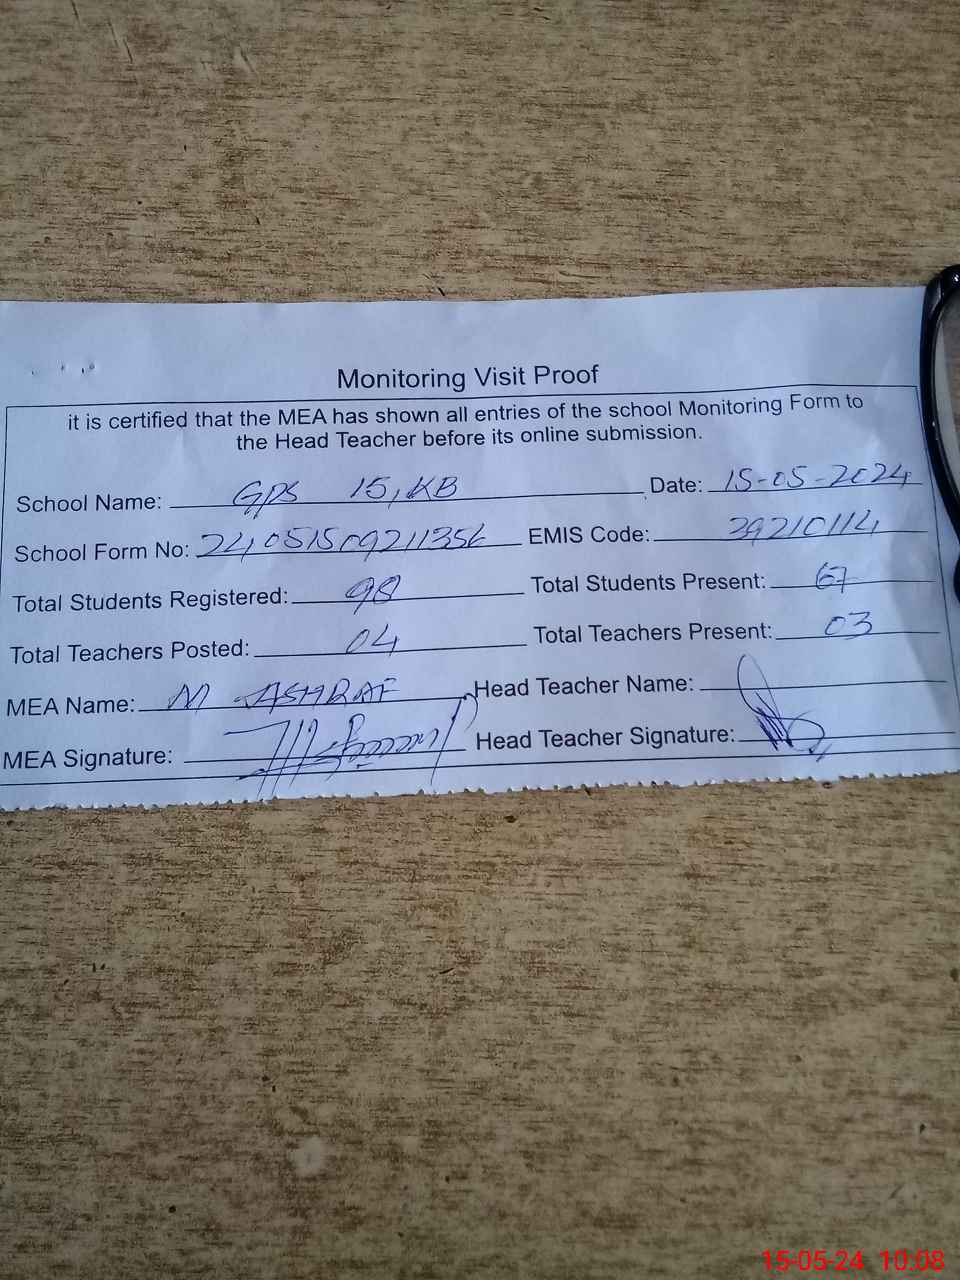 Monitoring Visit Proof
it is certified that the MEA has shown all entries of the school Monitoring Form to
the Head Teacher before its online submission.
School Name: GPS 15, KB Date: 15-05-2024
School Form No: 24051509211356 EMIS Code: 39210114
Total Students Registered: 98 Total Students Present: 67
Total Teachers Posted: 04 Total Teachers Present: 03
MEA Name: M ASHRAF Head Teacher Name:
MEA Signature: Head Teacher Signature:
15-05-24 10:08